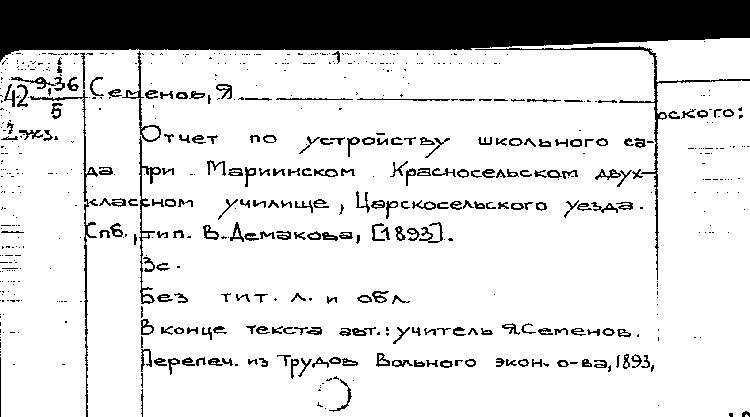 42 9,36
5
1 экз.
Семенов, Я.
оского:
Отчет по устройству школьного са-
да при Мариинском Красносельском двух-
классном училище, Царскосельского уезда.
Спб., тип. В. Демакова, [1893].
3с.
Без тит. л. и обл
В конце текста авт.: учитель Я.Семенов.
Перепеч. из Трудов Вольного экон. о-ва, 1893,